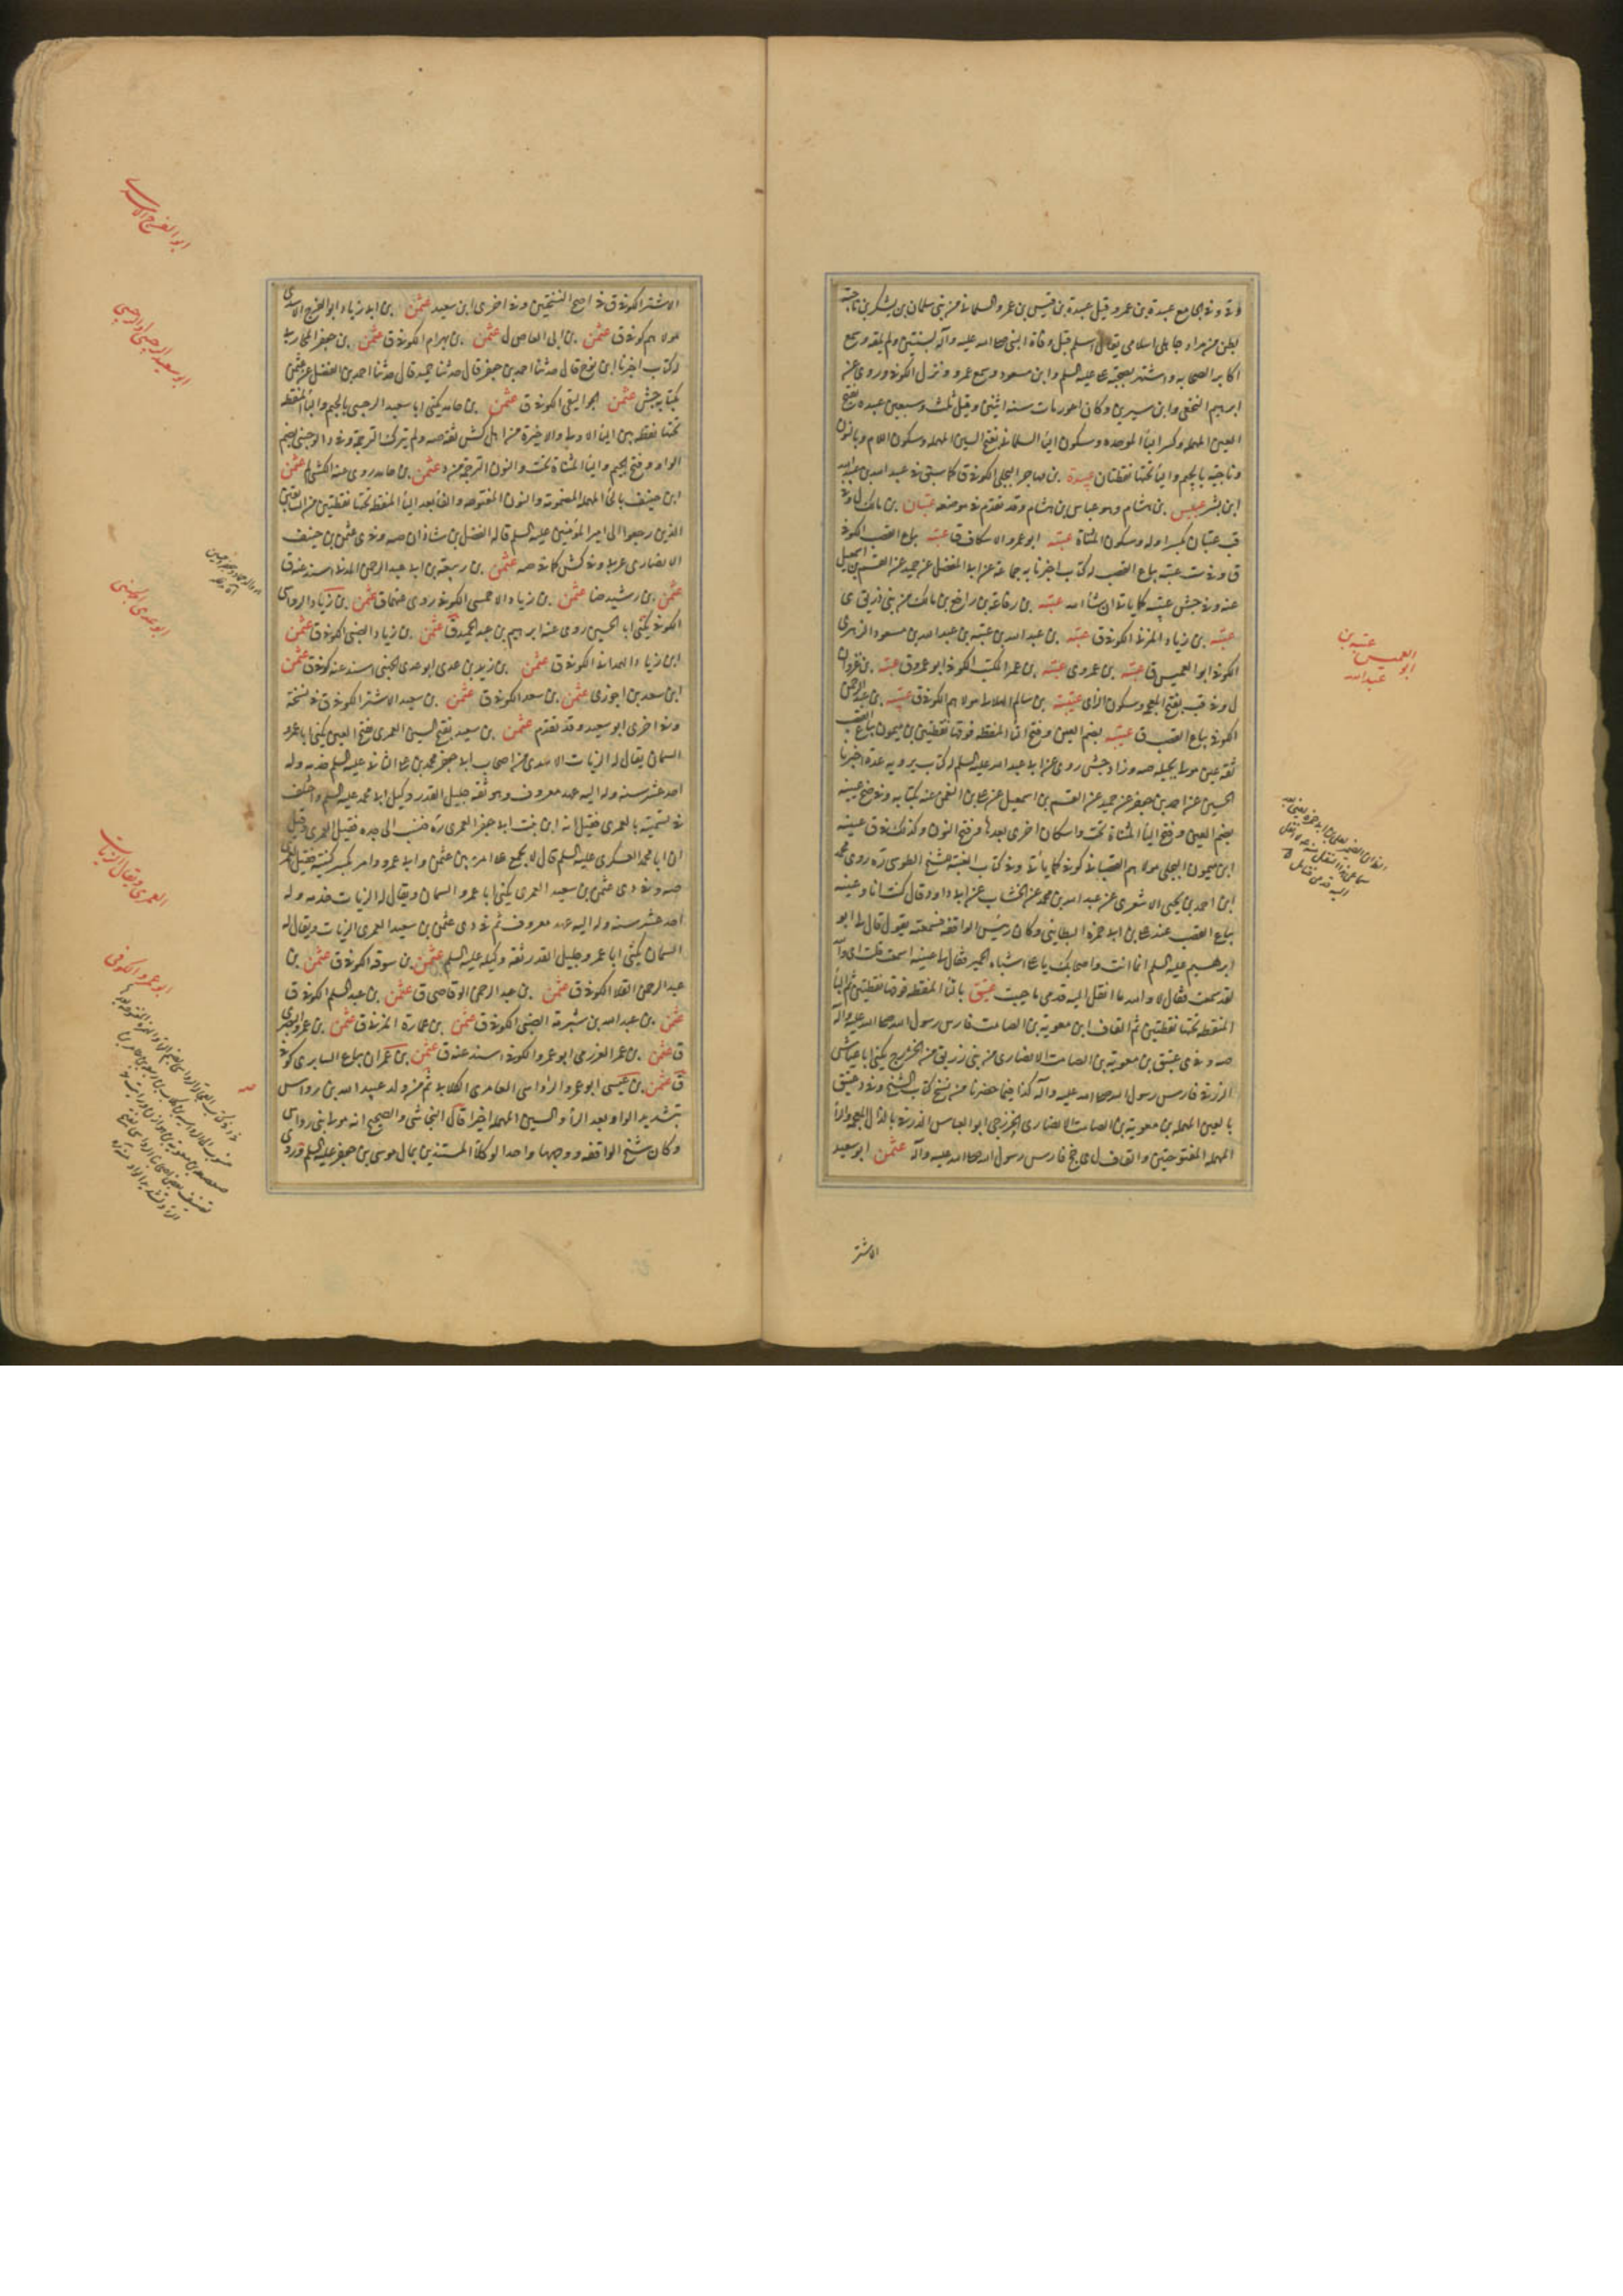 وفى الجامع عبيدة بن عمرو وقيل عبيدة بن قيس بن عمرو السلمانى من بنى سلمان بن يشكر بن ناجية
بطن من مراد جاهلى اسلامى يقال اسلم قبل وفاة النبى صلى الله عليه وآله بسنتين ولم يلقه وسمع
اكابر الصحابه واشتهر بصحبة على عليه السلم وابن مسعود وسمع عمر ونزل الكوفه وروى عنه
ابرهيم النخعى وابن سيرين وكان اعور مات سنه اثنين وقيل ثلث وسبعين عبيده بفتح
العين المهمله وكسر الباء الموحده وسكون الياء السلمانى بفتح السين المهمله وسكون اللام وبالنون
وناجيه بالجيم والياء تحتها نقطتان عبيدة بن مهاجر البجلى الكوفى ق كما سبق فى عبد الله بن
ابن بشر عبيس بن هشام وهو عباس بن هشام وقد تقدم فى موضعه عتبان بن مالك ل وفى
قب عتبان بكسر اوله وسكون المثناة عتبه ابو عمرو الاسكاف ق عتبه بياع القصب الكوفى
ق وفى ست عتبه بياع القصب له كتاب اخبرنا به جماعة عن ابى المفضل عن حميد عن القسم بن اسمعيل
عنه وفى جش عتيبه كما ياتى ان شاء الله عتبه بن رفاعة بن رافع بن مالك من بنى زريق ى
عتبه بن زياد المزنى الكوفى ق عتبه بن عبد الله بن عتبه بن عبد الله بن مسعود الزهرى
الكوفى ابو العميس ق عتبه بن عمرو ى عتبه بن عمر المكتب الكوفى ابو عمرو ق عتبه بن غزوان
ل وفى قب بفتح المعجمه وسكون الزاى عتيبه بن سالم الهلالى مولاهم الكوفى ق عتيبه بن عبد الرحمن
الكوفى بياع القصب ق عتيبه بضم العين وفتح التاء المنقطه فوقها نقطتين بن ميمون بياع القصب
ثقه عين مولى بجيله صه وزاد جش روى عن ابى عبد الله عليه السلم له كتاب يرويه عدة اخبرنا
الحسين عن احمد بن جعفر عن حميد عن القسم بن اسمعيل عن على بن النعمن عنه بكتابه وفى ضح عيينه
بضم العين وفتح الياء المثناة تحت واسكان اخرى بعدها وفتح النون وكذلك فى ق عيينه
ابن ميمون البجلى مولاهم القصبانى كوفى كما ياتى وفى كتاب الغيبة للشيخ الطوسى ره روى محمد
ابن احمد بن يحيى الاشعرى عن عبد الله بن محمد عن الخشاب عن ابى داود قال كنت انا وعيينه
بياع القصب عند على بن ابى حمزه البطاينى وكان رئيس الواقفه فسمعته يقول قال لى ابو
ابرهيم عليه السلم انما انت واصحابك يا على اشباه الحمير فقال لى عيينه اسمعت قلت اى والله
لقد سمعت فقال لا والله ما انقل اليه قدمى ما حييت عتيق بالتاء المنقطه فوقها نقطتين ثم الياء
المنقطه تحتها نقطتين ثم القاف ابن معوية بن الصامت فارس رسول الله صلى الله عليه وآله
صه وفى ى عتيق بن معوية بن الصامت الانصارى من بنى زريق من الخزرج يكنى ابا عياش
الزرقى فارس رسول الله صلى الله عليه وآله كذا فيما حضرنا من نسخ كتاب الشيخ وفى د عتيق
بالعين المهمله بن معوية بن الصامت الانصارى الخزرجى ابو العباس الذرقى بالذال المعجمه والراء
المهمله المفتوحتين والقاف ل ى جخ فارس رسول الله صلى الله عليه وآله عثمن ابو سعيد
الاشتر
عتبه بن
ابو العميس
عبد الله
الاشتر الكوفى ق فى اصح النسختين وفى اخرى ابن سعيد عثمن بن ابى زياد ابو الفرج الاسدى
مولاهم كوفى ق عثمن بن ابى العاص ل عثمن بن بهرام الكوفى ق عثمن بن جعفر المحاربى
له كتاب اخبرنا ابن نوح قال حدثنا احمد بن جعفر قال حدثنا حميد قال حدثنا احمد بن الفضل عن عثمن
بكتابه جش عثمن الجواليقى الكوفى ق عثمن بن حامد يكنى ابا سعيد الرجبى بالجيم والباء المنقطه
تحتها نقطه بين الياء الاولى والاخيرة من اهل كش ثقه صه ولم يترك الترجمة وفى د الوجينى بضم
الواو وفتح الجيم والياء المثناة تحت والنون الترجمة من د عثمن بن حامد روى عنه الكشى لم عثمن
ابن حنيف بالحاء المهمله المضمومة والنون المفتوحه والفاء بعد الياء المنقطه تحتها نقطتين من السابقين
الذين رجعوا الى امير المؤمنين عليه السلم قاله الفضل بن شاذان صه وفى ى عثمن بن حنيف
الانصارى عربى وفى كش كما فى صه عثمن بن ربيعة بن ابى عبد الرحمن المدنى اسند عنه ق
عثمن بن رشيد ضا عثمن بن زياد الاحمسى الكوفى روى عنهما ق عثمن بن زياد الرواسى
الكوفى يكنى ابا الحسين روى عنه ابرهيم بن عبد الحميد ق عثمن بن زياد الضبى الكوفى ق عثمن
ابن زياد الهمدانى الكوفى ق عثمن بن زيد بن عدى ابو عدى الجهنى اسند عنه كوفى ق عثمن
ابن سعد بن احوزى عثمن بن سعد الكوفى ق عثمن بن سعيد الاشتر الكوفى ق فى نسخة
وفى اخرى ابو سعيد وقد تقدم عثمن بن سعيد بفتح السين العمرى بفتح العين يكنى ابا عمرو
السمان يقال له الزيات الاسدى من اصحاب ابى جعفر محمد بن على الثانى عليه السلم خدمه وله
احد عشر سنه وله اليه عهد معروف وهو ثقه جليل القدر وكيل ابى محمد عليه السلم واختلف
فى تسميته بالعمرى فقيل انه ابن بنت ابى جعفر العمرى ره فنسب الى جده فقيل العمرى وقيل
ان ابا محمد العسكرى عليه السلم قال لا يجمع على امرء بين عثمن وابى عمرو وامر بكسر كنيته فقيل العمرى
صه وفى دى عثمن بن سعيد العمرى يكنى ابا عمرو السمان ويقال له الزيات خدمه وله
احد عشر سنه وله اليه عهد معروف ثم فى دى عثمن بن سعيد العمرى الزيات ويقال له
السمان يكنى ابا عمرو جليل القدر ثقه وكيله عليه السلم عثمن بن سوقه الكوفى ق عثمن بن
عبد الرحمن القلا الكوفى ق عثمن بن عبد الرحمن الوقاصى ق عثمن بن عبد السلم الكوفى ق
عثمن بن عبد الله بن شبرمة الضبى الكوفى ق عثمن بن عمارة المزنى ق عثمن بن عمرو البصرى
ق عثمن بن عمر العزرمى ابو عمرو الكوفى اسند عنه ق عثمن بن عمران بياع السابرى كوفى
ق عثمن بن عيسى ابو عمرو الرؤاسى العامرى الكلابى ثم من ولد عبيد الله بن رواس
بتشديد الواو بعد الراء والسين المهمله اخيرا قال النجاشى والصحيح انه مولى بنى رواس
وكان شيخ الواقفه ووجهها واحد الوكلاء المستبدين بمال موسى بن جعفر عليه السلم روى
ابو الفرج الاسدى
ابو سعيد الرجبى او الوجينى
ابو عدى الجهنى
العمرى ويقال الزيات
ابو عمرو الكوفى
صه